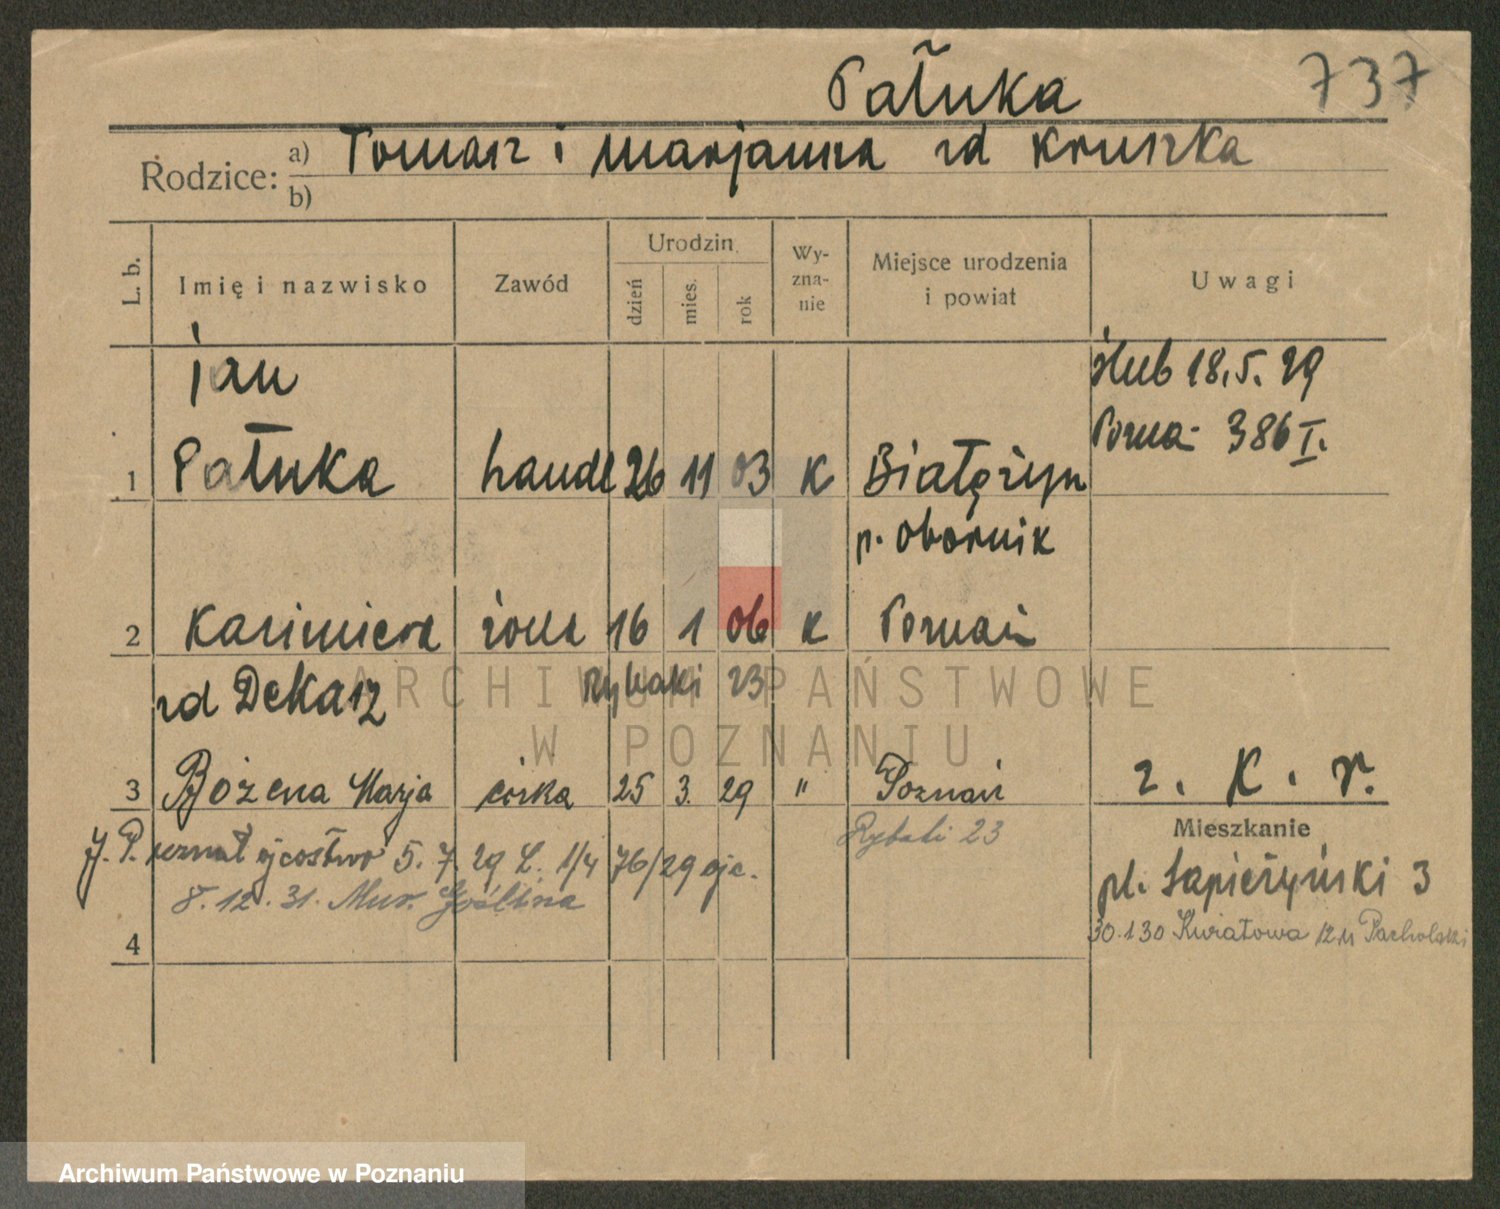 Pałuka 737
Rodzice: a) Tomasz i Marjanna zd Kruszka
b)
L. b. Imię i nazwisko Zawód Urodzin. dzień mies. rok Wy-zna-nie Miejsce urodzenia i powiat Uwagi
Jan ślub 18.5.29
Pozna- 386 I.
1 Pałuka handl 26 11 03 K Białężyn
p. Obornik
2 Kazimiera żona 16 1 06 K Poznań
zd Dekarz Rybaki 23
ARCHIWUM PAŃSTWOWE
W POZNANIU
3 Bożena Marja córka 25 3. 29 " Poznań z. K. r.
Rybaki 23
Mieszkanie
J. P. uznał ojcostwo 5. 7. 29 L. 1/4 76/29 ojc.
pl. Sapieżyński 3
8. 12. 31. Mur. Goślina
30.1.30 Kwiatowa 12 u Pacholski
4
Archiwum Państwowe w Poznaniu